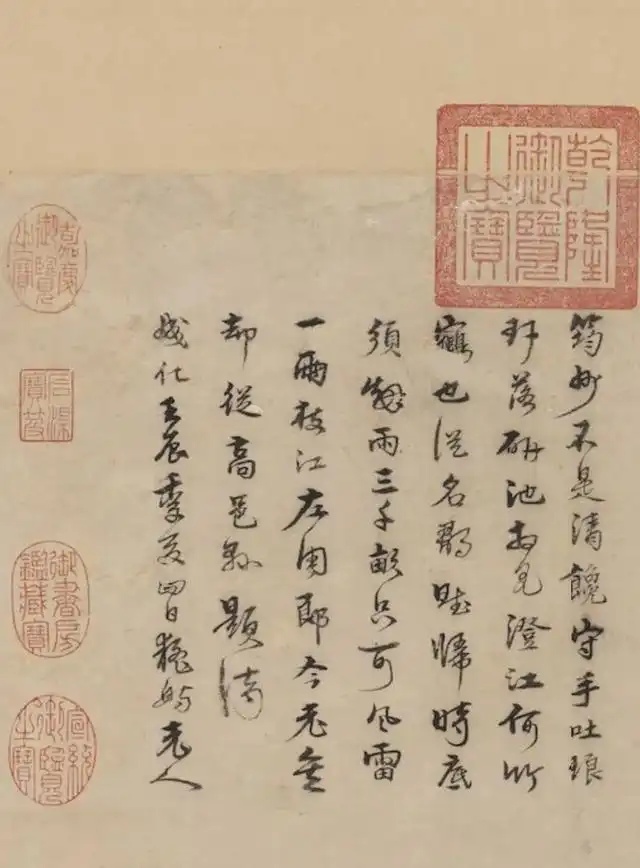 乾隆御覽之寶
不是清饞守手吐琅
玕落研池見澄江何
也從名歸時底
須雨三千畝只可風雷
一兩枝江左周郎今老矣
却從高題
成化壬辰季夏四日老人
嘉慶御覽之寶
石渠寶笈
御書房鑑藏寶
宣統御覽之寶